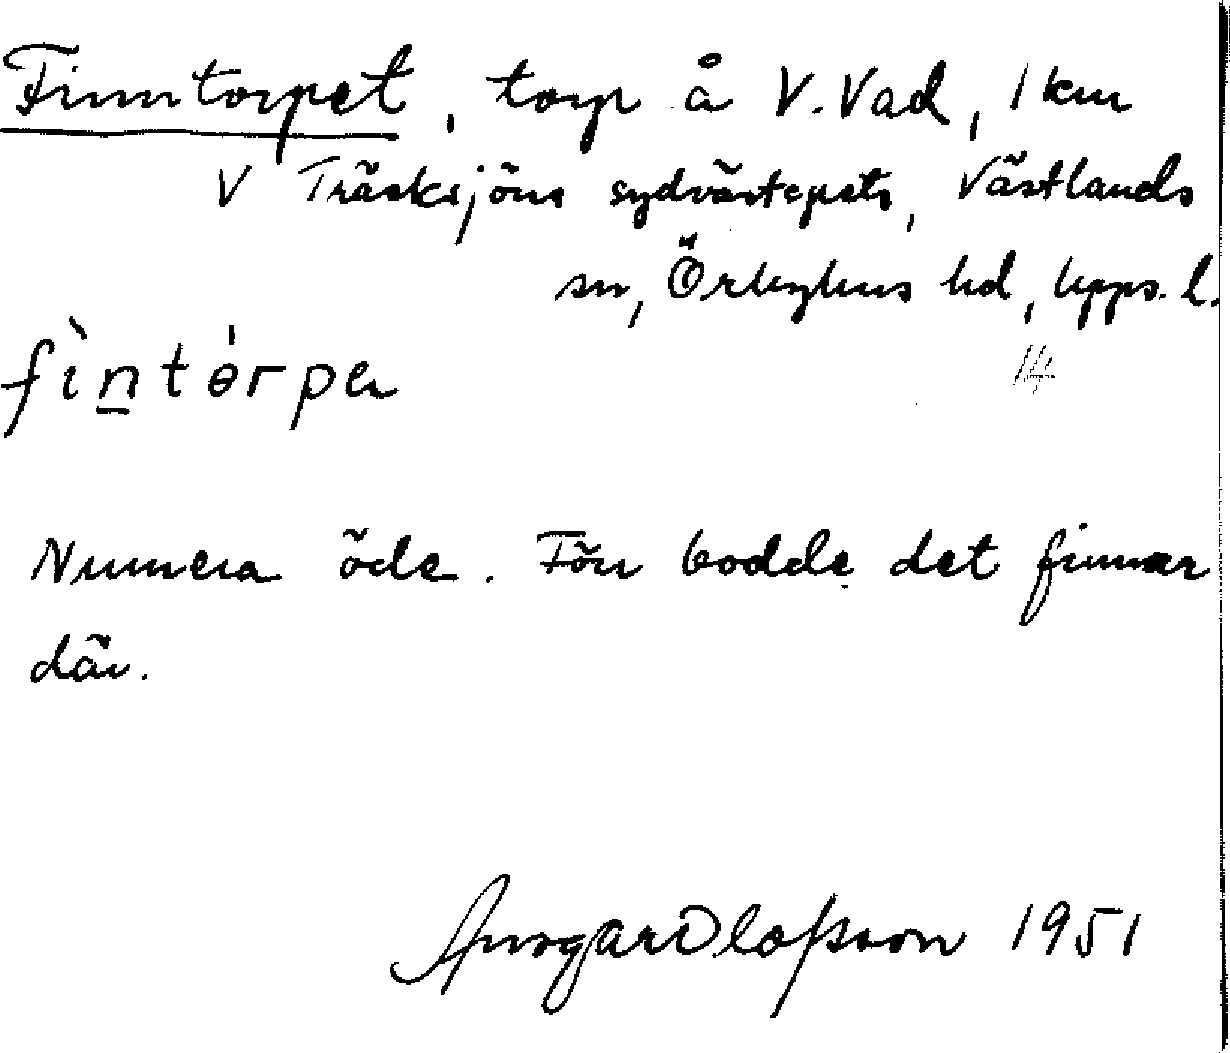 Finntorpet, torp å V. Vad, 1 km
V Träsksjöns sydvästspets, Västlands
sn, Örbyhus hd, Upps. l.
fìntórpe
14
Numera öde. Förr bodde det finnar
där.
Ansgar Olofsson 1951